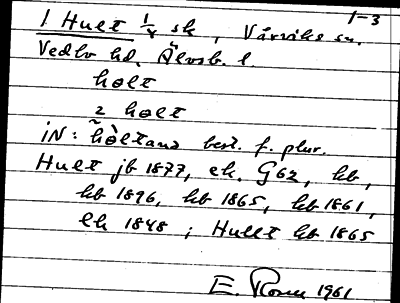 1-3
1 Hult 1/4 sk, Värsiks sn.
Vedbo hd. Älvsb. l.
hølt
2 hølt
iN: hø̀ltanz best. f. plur.
Hult jb 1877, ek. G62, kb,
kb 1896, kb 1865, kb 1861,
lk 1848 ; Hullt kb 1865
E. 1961